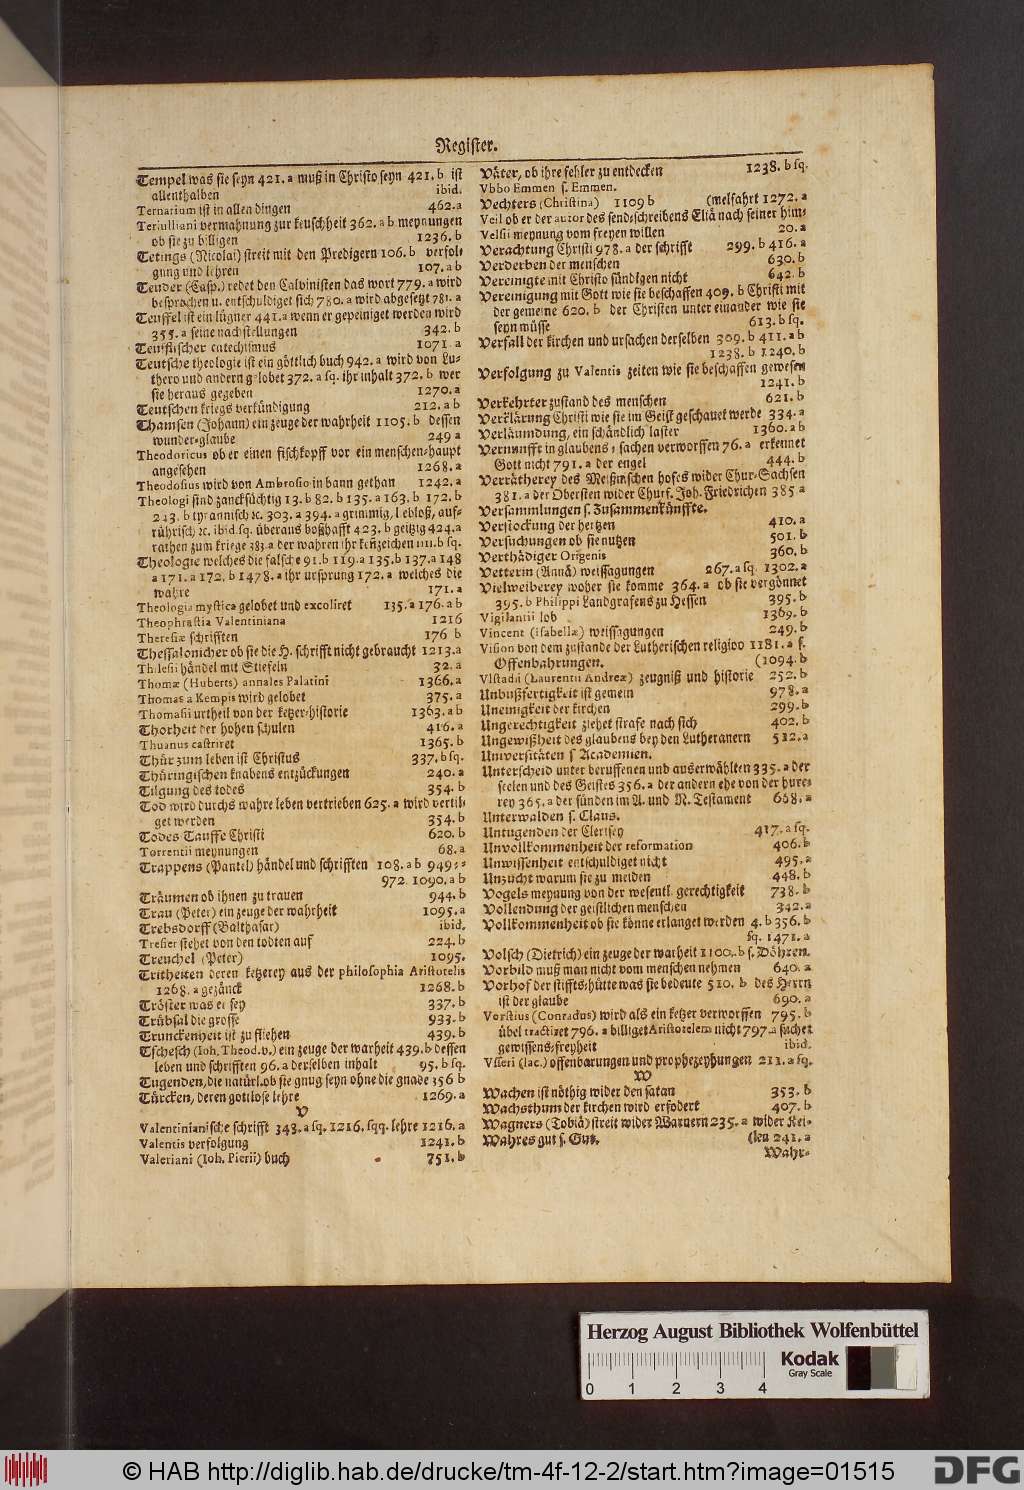 Register.
Tempel was sie seyn 421. a muß in Christo seyn 421. b ist
allenthalben ibid.
Ternarium ist in allen dingen 462. a
Tertulliani vermahnung zur keuschheit 362. a b meynungen
ob sie zu billigen 1236. b
Tetings (Nicolai) streit mit den Predigern 106. b verfol-
gung und lehren 107. a b
Teuder (Casp.) redet den Calvinisten das wort 779. a wird
besprochen u. entschuldiget sich 780. a wird abgesetzt 781. a
Teuffel ist ein lügner 441. a wenn er gepeiniget werden wird
355. a seine nachstellungen 342. b
Teuffischer catechismus 1071. a
Teutsche theologie ist ein göttlich buch 942. a wird von Lu-
thero und andern gelobet 372. a sq. ihr inhalt 372. b wer
sie heraus gegeben 1270. a
Teutschen kriegs verkündigung 212. a b
Thamsen (Johann) ein zeuge der wahrheit 1105. b dessen
wunder-glaube 249 a
Theodoricus ober einen fischkopff vor ein menschen-haupt
angesehen 1268. a
Theodosius wird von Ambrosio in bann gethan 1242. a
Theologi sind zancksüchtig 13. b 82. b 135. a 163. b 172. b
243. b tyrannisch ꝛc. 303. a 394. a grimmig, lebloß, auf-
rührisch ꝛc. ibid. sq. überaus boßhafft 423. b geitzig 424. a
rathen zum kriege 383. a der wahren ihr keñzeichen 1111. b sq.
Theologie welches die falsche 91. b 119. a 135. b 137. a 148
a 171. a 172. b 1478. a ihr ursprung 172. a welches die
wahre 171. a
Theologia mystica gelobet und excoliret 135. a 176. a b
Theophrastia Valentiniana 1216
Theresiæ schrifften 176 b
Thessalonicher ob sie die H. schrifft nicht gebraucht 1213. a
Thilesii händel mit Stiefeln 32. a
Thomæ (Huberts) annales Palatini 1366. a
Thomas a Kempis wird gelobet 375. a
Thomasii urtheil von der ketzer-historie 1363. a b
Thorheit der hohen schulen 416. a
Thuanus castriret 1365. b
Thür zum leben ist Christus 337. b sq.
Thüringischen knabens entzückungen 240. a
Tilgung des todes 354. b
Tod wird durchs wahre leben vertrieben 625. a wird vertil-
get werden 354. b
Todes Tauffe Christi 620. b
Torrentii meynungen 68. a
Trappens (Pantel) händel und schrifften 108. a b 949:-
972. 1090. a b
Träumen ob ihnen zu trauen 944. b
Trau (Peter) ein zeuge der wahrheit 1095. a
Trebsdorff (Balthasar) ibid.
Tresier stehet von den todten auf 224. b
Treuchel (Peter) 1095.
Tritheiten deren ketzerey aus der philosophia Aristotelis
1268. a gezänck 1268. b
Tröster was er sey 337. b
Trübsal die grosse 933. b
Trunckenheit ist zu fliehen 439. b
Tschesch (Joh. Theod. v.) ein zeuge der warheit 439. b dessen
leben und schrifften 96. a derselben inhalt 95. b sq.
Tugenden, die natürl. ob sie gnug seyn ohne die gnade 356 b
Türcken, deren gottlose lehre 1269. a
V
Valentinianische schrifft 343. a sq. 1216. sqq. lehre 1216. a
Valentis verfolgung 1241. b
Valeriani (Joh. Pierii) buch 751. b
Väter, ob ihre fehler zu entdecken 1238. b sq.
Vbbo Emmen s. Emmen.
Vechters (Christina) 1109 b (melfahrt 1272. a
Veil ob er der autor des send-schreibens Eliä nach seiner him-
Velsii meynung vom freyen willen 20. a
Verachtung Christi 978. a der schrifft 299. b 416. a
Verderben der menschen 630. b
Vereinigte mit Christo sündigen nicht 642. b
Vereinigung mit Gott wie sie beschaffen 409. b Christi mit
der gemeine 620. b der Christen unter einander wie sie
seyn müsse 613. b sq.
Verfall der kirchen und ursachen derselben 309. b 411. a b
1238. b 1240. b
Verfolgung zu Valentis zeiten wie sie beschaffen gewesen
1241. b
Verkehrter zustand des menschen 621. b
Verklärung Christi wie sie im Geist geschauet werde 334. a
Verläumdung, ein schändlich laster 1360. a b
Vernunfft in glaubens-sachen verworffen 76. a erkennet
Gott nicht 791. a der engel 444. b
Verrätherey des Meißnischen hofes wider Chur-Sachsen
381. a der Obersten wider Churf. Joh. Friedrichen 385 a
Versammlungen s. Zusammenkünffte.
Verstockung der hertzen 410. a
Versuchungen ob sie nutzen 501. b
Verthädiger Origenis 360. b
Vetterin (Annä) weissagungen 267. a sq. 1302. a
Vielweiberey woher sie komme 364. a ob sie vergönnet
395. b Philippi Landgrafens zu Hessen 395. b
Vigilantii lob 1369. b
Vincent (isabellæ) weissagungen 249. b
Vision von dem zustande der Lutherischen religion 1181. a s.
Offenbahrungen. (1094. b
Vlstadii (Laurentii Andreæ) zeugniß und historie 252. b
Unbußfertigkeit ist gemein 978. a
Uneinigkeit der kirchen 299. b
Ungerechtigkeit ziehet strafe nach sich 402. b
Ungewißheit des glaubens bey den Lutheranern 512. a
Universitäten s Academien.
Unterscheid unter beruffenen und auserwählten 335. a der
seelen und des Geistes 356. a der andern ehe von der hure-
rey 365. a der sünden im A. und N. Testament 668. a
Unterwalden s. Claus.
Untugenden der Clerisey 417. a sq.
Unvollkommenheit der reformation 406. b
Unwissenheit entschuldiget nicht 495. a
Unzucht warum sie zu meiden 448. b
Vogels meynung von der wesentl. gerechtigkeit 738. b
Vollendung der geistlichen menschen 342. a
Vollkommenheit ob sie könne erlanget werden 4. b 356. b
sq. 1471. a
Volsch (Dietrich) ein zeuge der warheit 1100. b s. Döhren.
Vorbild muß man nicht vom menschen nehmen 640. a
Vorhof der stiffts-hütte was sie bedeute 510. b des Herrn
ist der glaube 690. a
Vorstius (Conradus) wird als ein ketzer verworffen 795. b
übel tractiret 796. a billiget Aristotelem nicht 797. a suchet
gewissens-freyheit ibid.
Vsseri (Jac.) offenbarungen und prophezeyhungen 211. a sq.
W
Wachen ist nöthig wider den satan 353. b
Wachsthum der kirchen wird erfodert 407. b
Wagners (Tobiä) streit wider Warnern 235. a wider Rei-
Wahres gut s. Gut. (sen 241. a
Wahr-
Herzog August Bibliothek Wolfenbüttel
Kodak
Gray Scale
0 1 2 3 4
© HAB http://diglib.hab.de/drucke/tm-4f-12-2/start.htm?image=01515
DFG